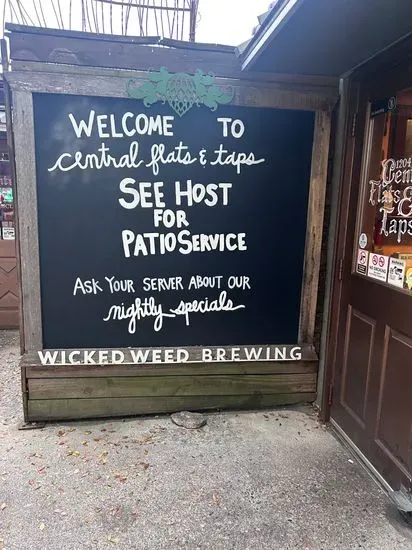 WELCOME TO
central flats & taps
SEE HOST
FOR
PATIO SERVICE
ASK YOUR SERVER ABOUT OUR
nightly specials
WICKED WEED BREWING
1204
Flats
&
Taps
WARNING